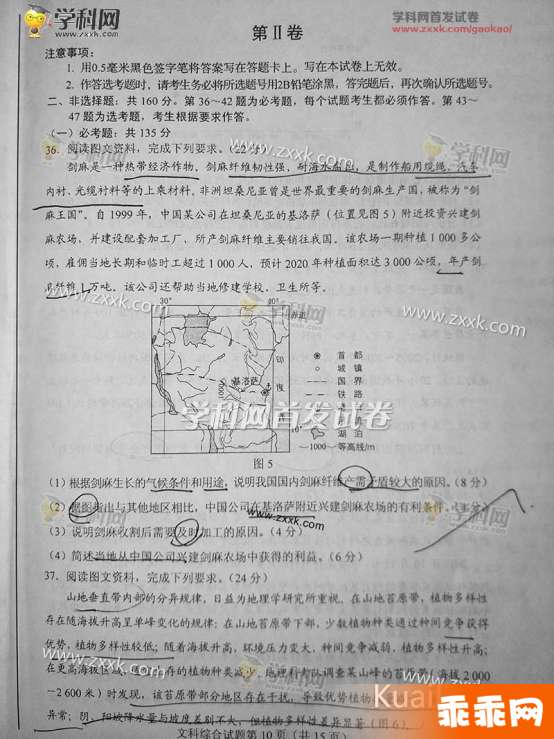 学科网
www.zxxk.com
学科网首发试卷
www.zxxk.com/gaokao/
第Ⅱ卷
注意事项：
1. 用0.5毫米黑色签字笔将答案写在答题卡上。写在本试卷上无效。
2. 作答选考题时，请考生务必将所选题号用2B铅笔涂黑，答完题后，再次确认所选题号。
二、非选择题：共 160 分。第 36～42 题为必考题，每个试题考生都必须作答。第 43～
47 题为选考题，考生根据要求作答。
（一）必考题：共 135 分
36. 阅读图文资料，完成下列要求。（22 分）
剑麻是一种热带经济作物，剑麻纤维韧性强，耐海水 是制作船用缆绳、汽车
内衬、光缆衬料等的上乘材料。非洲坦桑尼亚曾是世界最重要的剑麻生产国，被称为“剑
麻王国”。自 1999 年，中国某公司在坦桑尼亚的基洛萨（位置见图 5）附近投资兴建剑
麻农场，并建设配套加工厂，所产剑麻纤维主要销往我国。该农场一期种植 1 000 多公
顷，雇佣当地长期和临时工超过 1 000 人，预计 2020 年种植面积达 3 000 公顷，年产剑
麻纤维 1 万吨。该公司还帮助当地修建学校、卫生所等。
学科网
www.zxxk.com
30° 40°
赤道
印
度
基洛萨
1000
10°
首 都
城 镇
国 界
铁 路
湖 泊
—1000—等高线/m
学科网首发试卷
图 5
（1）根据剑麻生长的气候条件和用途，说明我国国内剑麻纤维产需矛盾较大的原因。（8 分）
（2）据图指出与其他地区相比，中国公司在基洛萨附近兴建剑麻农场的有利条件。（4分）
www.zxxk.com
（3）说明剑麻收割后需要及时加工的原因。（4 分）
（4）简述当地从中国公司兴建剑麻农场中获得的利益。（6 分）
37. 阅读图文资料，完成下列要求。（24 分）
山地垂直带内部的分异规律，日益为地理学研究所重视。在山地苔原带，植物多样性
存在随海拔升高呈单峰变化的规律：在山地苔原带下部，少数植物种类通过种间竞争获得
优势，植物多样性较低；随着海拔升高，环境压力变大，种间竞争减弱，植物多样性升高；
在更高海拔区域， 存的植物种类减少。地理科考队调查某山峰的苔原带（海拔 2 000
～2 600 米）时发现，该苔原带部分地区存在干扰，导致优势植物
异常；阴、阳坡降水量与坡度差别不大，但植物多样性差异显著（图 6）
学科网
www.zxxk.com
文科综合试题第 10 页（共 15 页）
Kuai
乖乖网